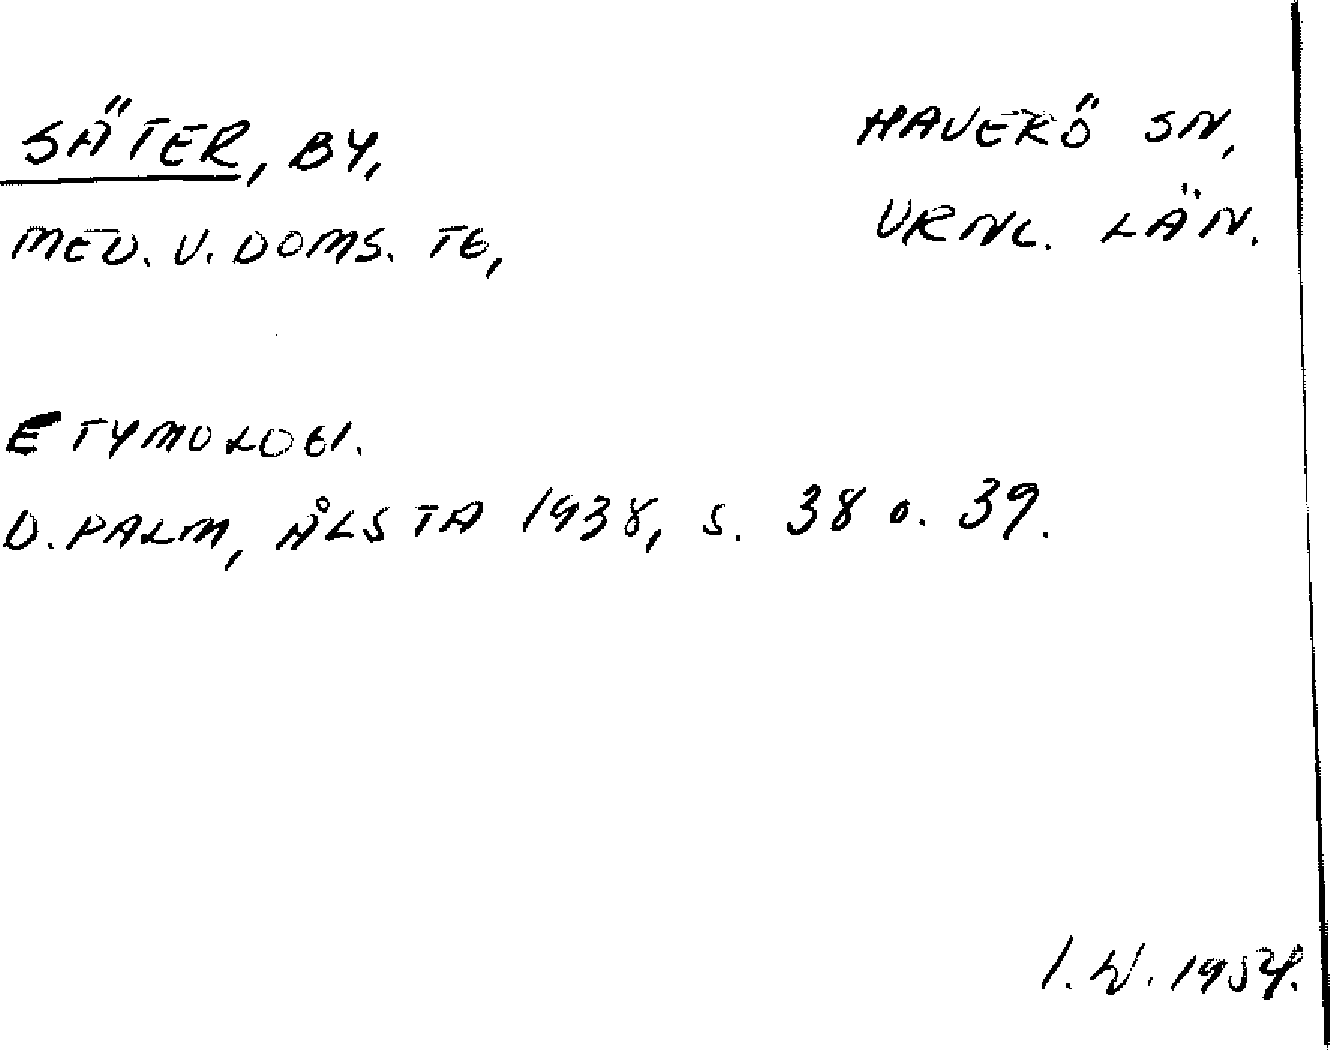 SÄTER, BY,
HAVERÖ SN,
MED. V. DOMS. TG,
VRNL. LÄN.
ETYMOLOGI.
D. PALM, ÅLSTA 1938, S. 38 o. 39.
I. W. 1954.